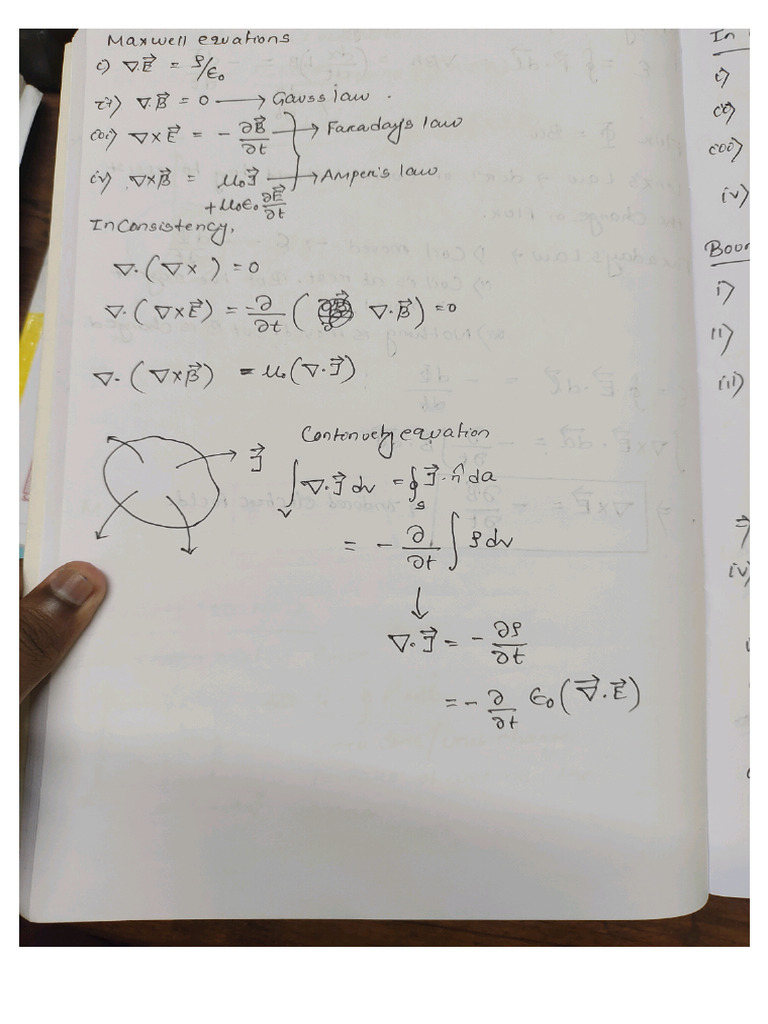 Maxwell equations
i) ∇.E⃗ = ρ/ε₀
ii) ∇.B⃗ = 0 → Gauss law .
iii) ∇×E⃗ = - ∂B⃗/∂t → Faradays law
iv) ∇×B⃗ = μ₀J⃗ → Amper's law
+ μ₀ε₀ ∂E⃗/∂t
Inconsistency,
∇.(∇× ) = 0
∇.(∇×E⃗) = -∂/∂t ( ∇.B⃗) = 0
∇.(∇×B⃗) = μ₀(∇.J⃗)
Continuety equation
J⃗
∫ᵥ ∇.J⃗ dv = ∮ₛ J⃗.n̂ da
= - ∂/∂t ∫ ρdv
↓
∇.J⃗ = - ∂ρ/∂t
= - ∂/∂t ε₀(∇⃗.E⃗)
In
i)
ii)
iii)
iv)
Boun
i)
ii)
iii)
⇒
iv)